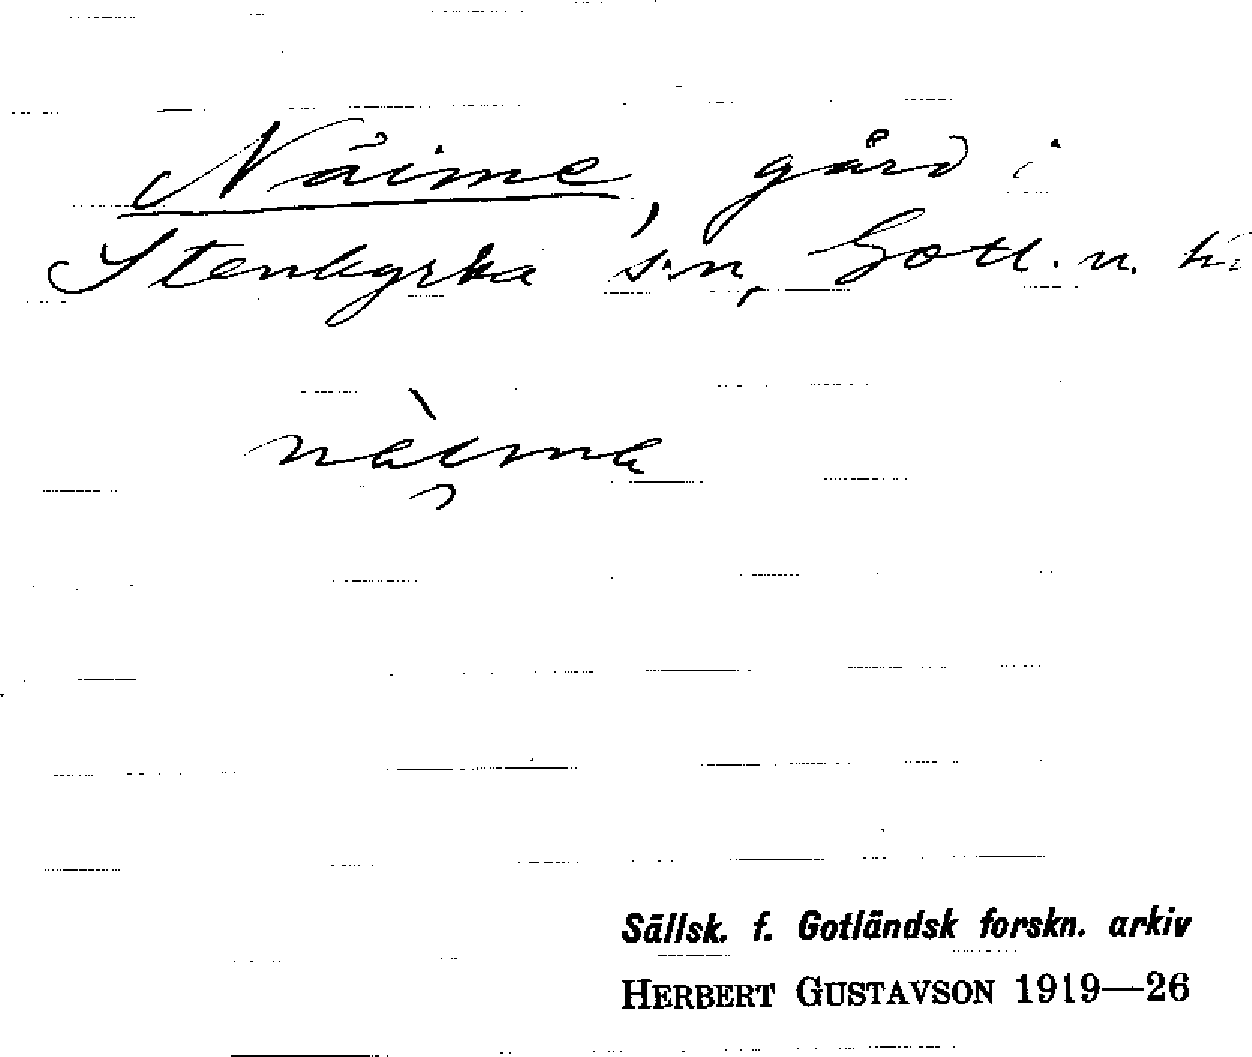 Näime, gård i
Stenkyrka s:n, Gotl. n. hd
nàima
Sällsk. f. Gotländsk forskn. arkiv
HERBERT GUSTAVSON 1919—26